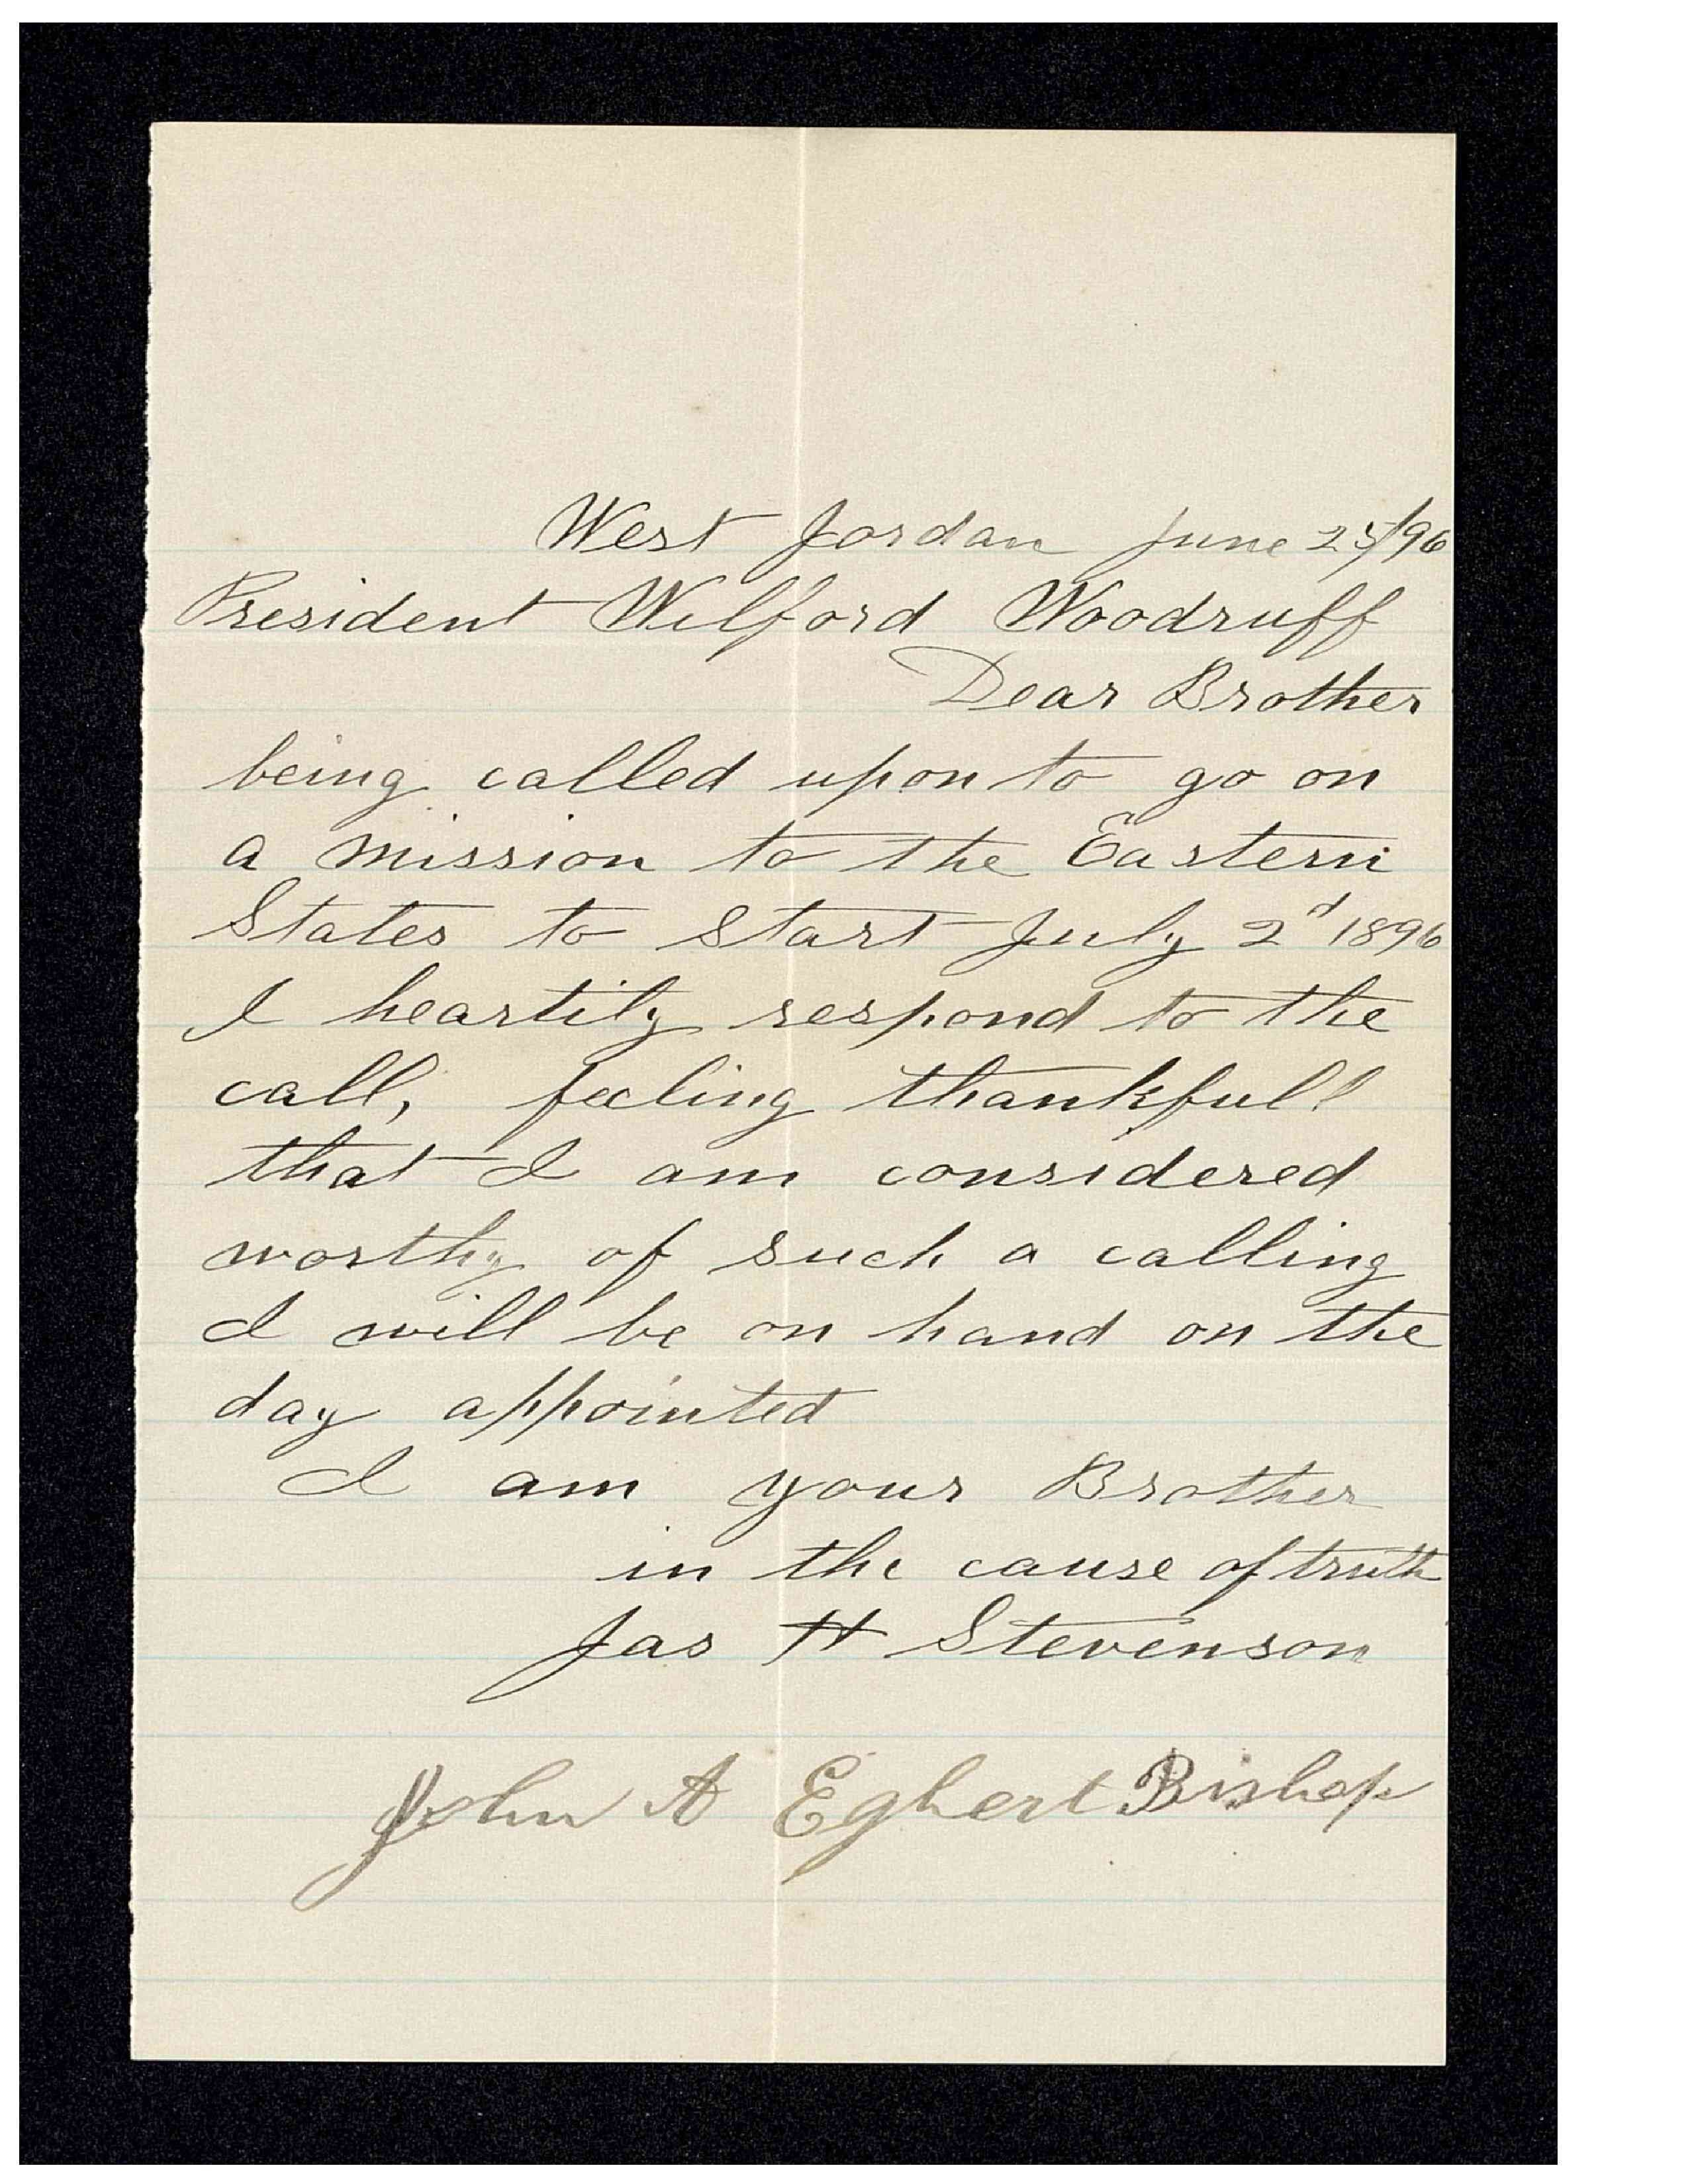 West Jordan June 25/96
President Wilford Woodruff
Dear Brother
being called upon to go on
a mission to the Eastern
States to start July 2d 1896
I heartily respond to the
call, feeling thankfull
that I am considered
worthy of such a calling
I will be on hand on the
day appointed
I am your Brother
in the cause of truth
Jas H Stevenson
John A Egbert Bishop